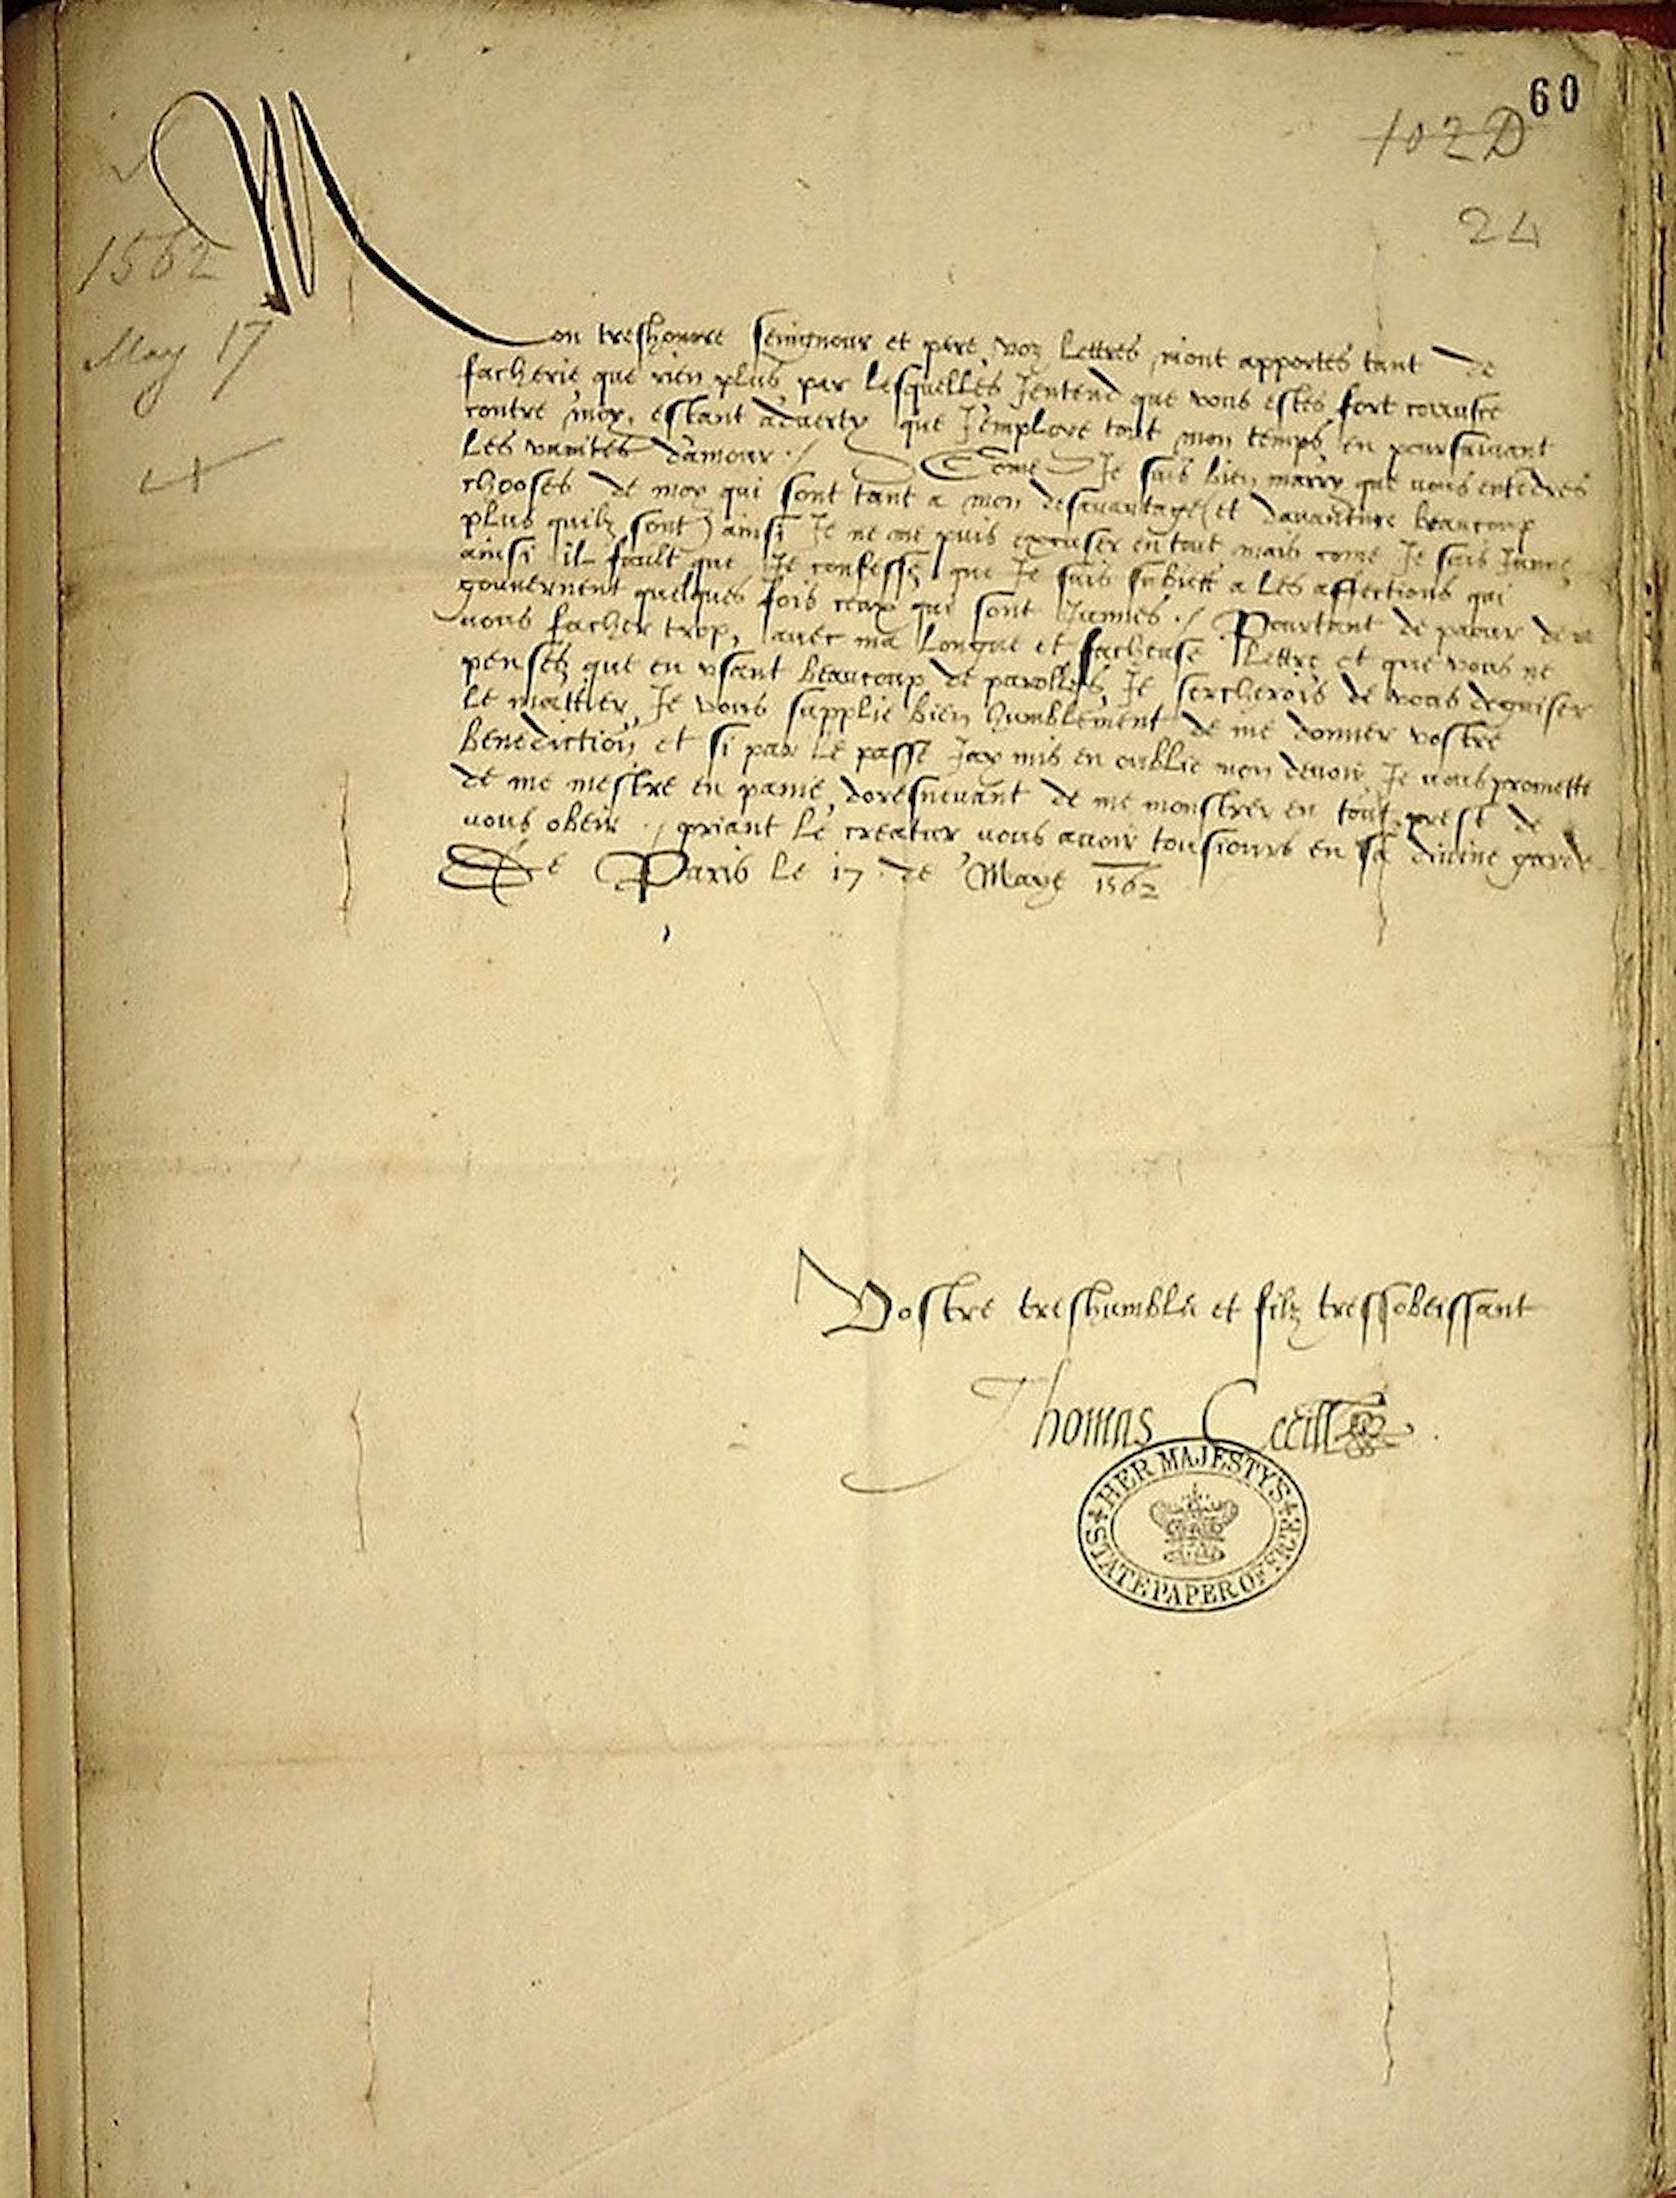 60
102 D
24
1562
May 17
Mon treshonnore seingneur et pere, voz lettres m'ont apportes tant de
facherie que rien plus, par lesquelles Jentend que vous estes fort corrusce
contre moy, estant adverty que J'employe tout mon temps en poursuivant
les vanites d'amour ./ Come Je suis bien marry que vous entedres
chooses de moy qui sont tant a mon desavantage (et davanture beaucoup
plus quilz sont) ainsi Je ne me puis excuser en tout mais come Je suis Junne,
ainsi il fault que Je confesse que Je suis subiett a les affections qui
gouvernent quelques fois ceux qui sont Junnes ./ Pourtant de paour de
vous facher trop, avec ma longue et facheuse lettre et que vous ne
pensez que en usant beaucoup de parolles, Je sercherois de vous deguiser
le mattier, Je vous supplie bien humblement de me donner vostre
benediction et si par le passe Jay mis en oublie mon devoir, Je vous promette
de me mestre en paine, doresnevant de me monstrer en tout prest de
vous obeir ./ priant le creatier vous avoir tousiours en sa divine garde
De Paris le 17 de Maye 1562
Vostre treshumble et filz tressobeissant
Thomas Cecill
HER MAJESTY'S
STATE PAPER OFFICE